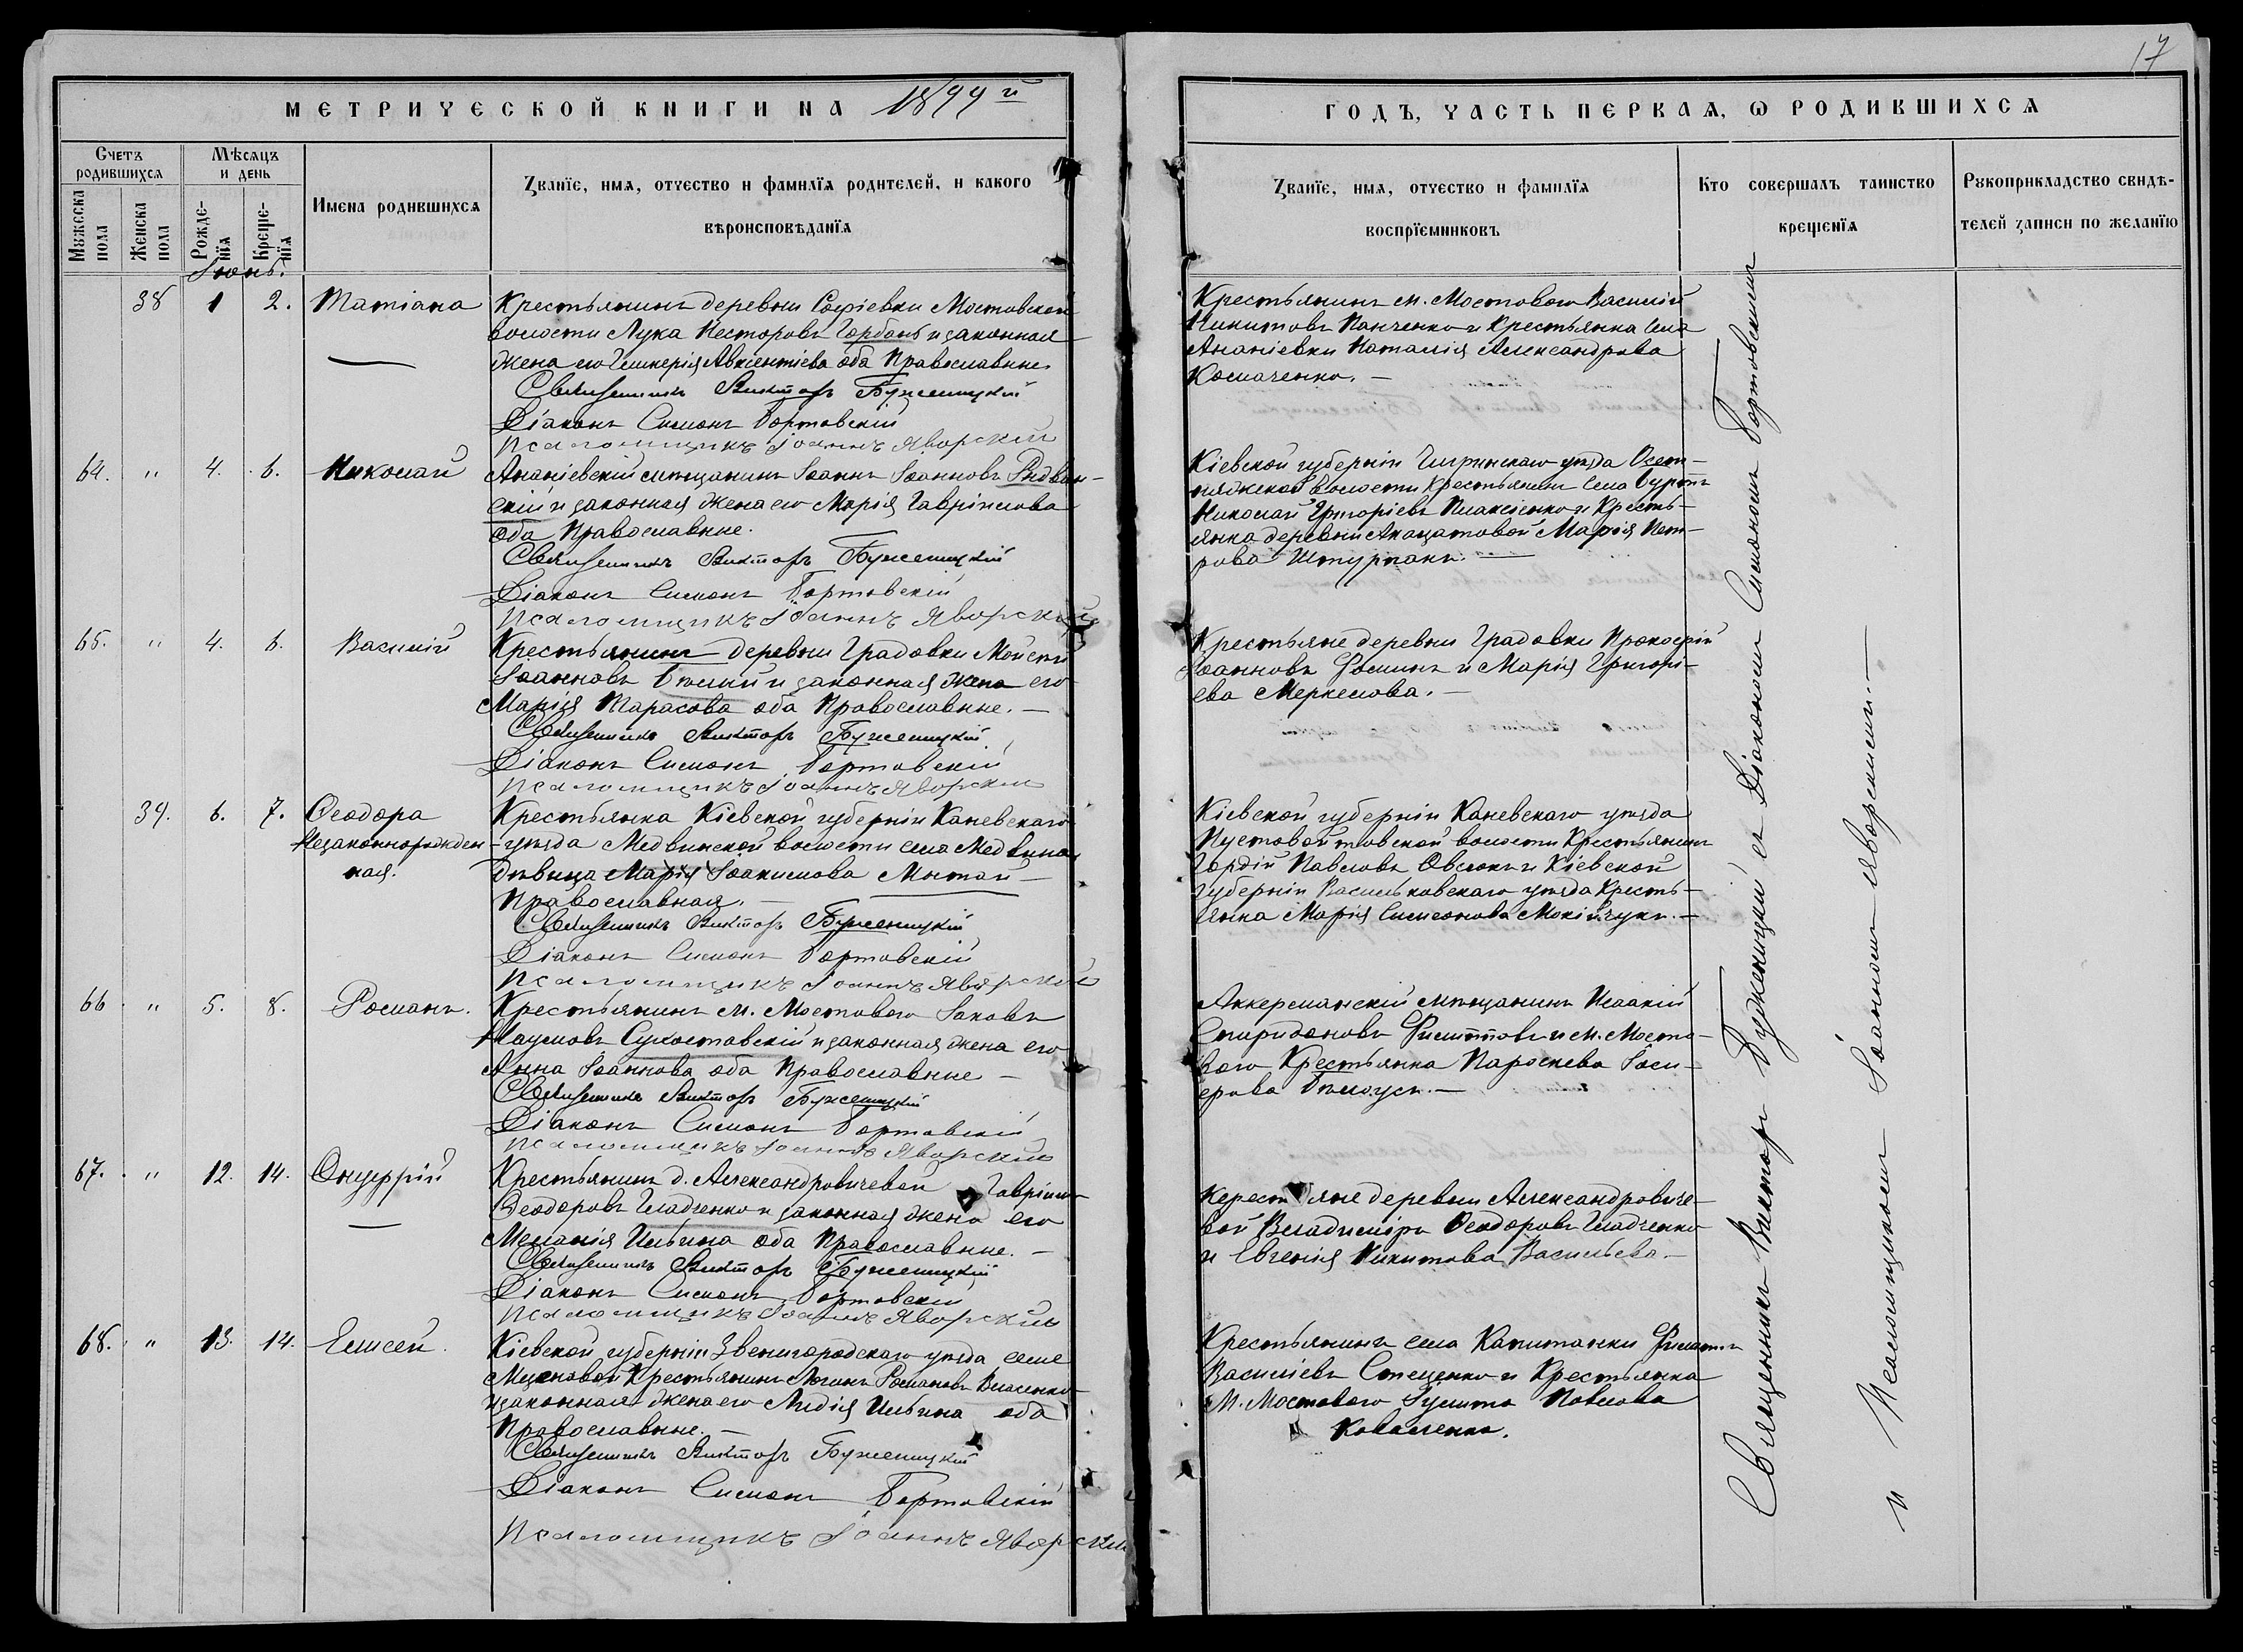 17
МЕТРИЧЕСКОЙ КНИГИ НА 1899й
ГОДЪ, ЧАСТЬ ПЕРВАЯ, Ѡ РОДИВШИХСЯ
Счетъ родившихся
Мѣсяцъ и день
Имена родившихся
Званїе, имя, отчество и фамилїя родителей, и какого
вѣроисповѣданїя
Званїе, имя, отчество и фамилїя
воспрїемниковъ
Кто совершалъ таинство
крещенїя
Рукоприкладство свидѣ-
телей записи по желанїю
Мужеска пола
Женска пола
Рожде-нїя
Креще-нїя
Іюнь.
38 1 2. Татіана
Крестьянинъ деревни Софіевки Мостовской
волости Лука Несторовъ Горбань и законная
жена его Гликерія Авксентіева оба Православные
Священникъ Викторъ Буженицкій
Діаконъ Симонъ Бортовскій
Псаломщикъ Іоаннъ Яворскій
Крестьянинъ м. Мостового Василій
Никитовъ Панченко и Крестьянка села
Ананіевки Наталія Александрова
Космаченко. —
64. " 4. 6. Николай
Ананіевскій мѣщанинъ Іоаннъ Іоанновъ Ридван-
скій и законная жена его Марія Гавріилова
оба Православные.
Священникъ Викторъ Буженицкій
Діаконъ Симонъ Бортовскій
Псаломщикъ Іоаннъ Яворскій
Кіевской губерніи Чигринскаго уѣзда Осет-
няжской волости Крестьянинъ села
Николай Григоріевъ Плаксіенко и Кресть-
янка деревни Акацатовой Марія Пет-
рова Штурпакъ. —
65. " 4. 6. Василій
Крестьянинъ деревни Градовки Моисей
Іоанновъ Бѣлый и законная жена его
Марія Тарасова оба Православные. —
Священникъ Викторъ Буженицкій
Діаконъ Симонъ Бортовскій
Псаломщикъ Іоаннъ Яворскій
Крестьяне деревни Градовки Прокофій
Іоанновъ Фоминъ и Марія Григорі-
ева Меркелова. —
39. 6. 7. Ѳеодора
Незаконнорожден-
ная.
Крестьянка Кіевской губерніи Каневскаго
уѣзда Медвинской волости села Медвина
дѣвица Марія Іоакимова Мытай —
Православная. —
Священникъ Викторъ Буженицкій
Діаконъ Симонъ Бортовскій
Псаломщикъ Іоаннъ Яворскій
Кіевской губерніи Каневскаго уѣзда
Пустовойтовской волости Крестьянинъ
Гордій Павловъ Овсюкъ и Кіевской
губерніи Васильковскаго уѣзда Кресть-
янка Марія Симеонова Мокійчукъ. —
66 " 5. 8. Романъ.
Крестьянинъ м. Мостового Іаковъ
Наумовъ Сухоставскій и законная жена его
Анна Іоаннова оба Православные —
Священникъ Викторъ Буженицкій
Діаконъ Симонъ Бортовскій
Псаломщикъ Іоаннъ Яворскій
Аккерманскій мѣщанинъ Исаакій
Спиридоновъ Филипповъ и м. Мосто-
вого Крестьянка Параскева Іоси-
фова Бѣлоусъ. —
67. " 12. 14. Онуфрій
Крестьянинъ д. Александровичевой Гавріилъ
Ѳеодоровъ Гладченко и законная жена его
Меланія Ильина оба Православные. —
Священникъ Викторъ Буженицкій
Діаконъ Симонъ Бортовскій
Псаломщикъ Іоаннъ Яворскій
Крестьяне деревни Александровиче-
вой Владиміръ Ѳеодоровъ Гладченко
и Евгенія Никитова Васильева —
68. " 13. 14. Елисей.
Кіевской губерніи Звенигородскаго уѣзда села
Крестьянинъ Логинъ Романовъ Власенко
и законная жена его Лидія Ильина оба
Православные. —
Священникъ Викторъ Буженицкій
Діаконъ Симонъ Бортовскій
Псаломщикъ Іоаннъ Яворскій
Крестьянинъ села Капитанки Филиппъ
Василіевъ Стеценко и Крестьянка
М. Мостового Іулита Павлова
Коваленко.
Священникъ Викторъ Буженицкій съ Діакономъ Симономъ Бортовскимъ
и Псаломщикомъ Іоанномъ Яворскимъ. —